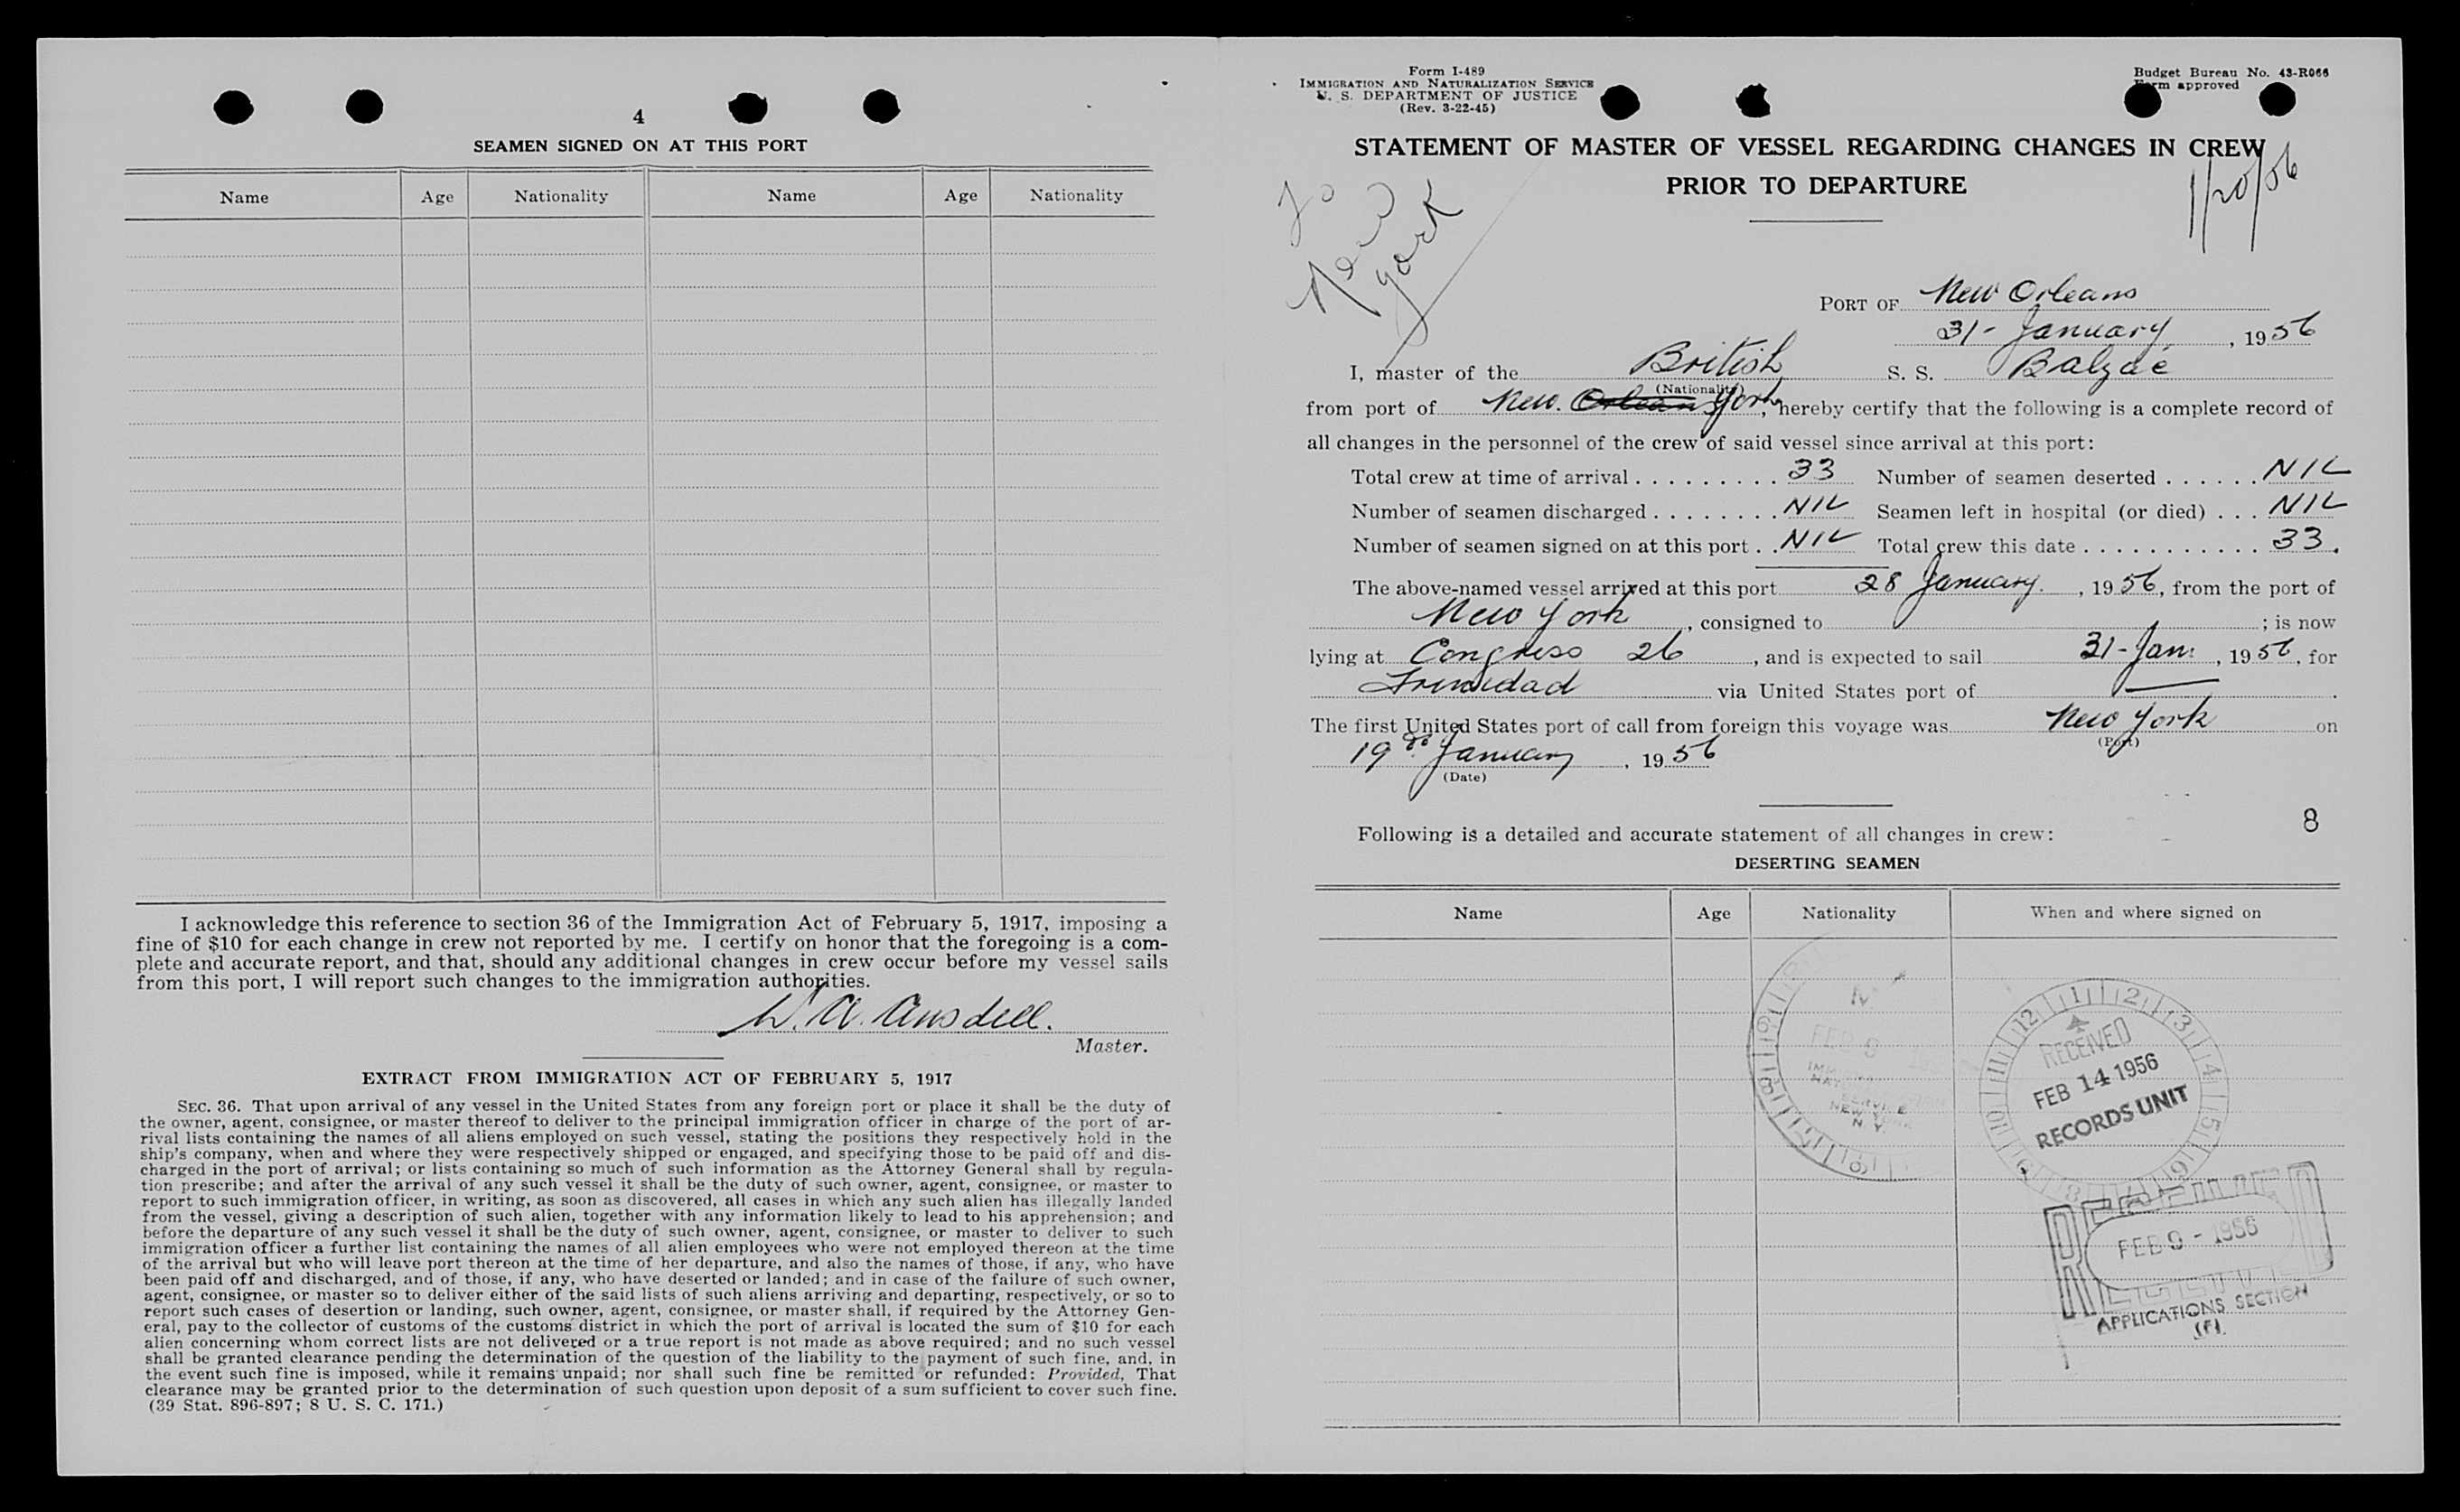 4
SEAMEN SIGNED ON AT THIS PORT
Name Age Nationality Name Age Nationality
I acknowledge this reference to section 36 of the Immigration Act of February 5, 1917, imposing a
fine of $10 for each change in crew not reported by me. I certify on honor that the foregoing is a com-
plete and accurate report, and that, should any additional changes in crew occur before my vessel sails
from this port, I will report such changes to the immigration authorities.
W. A. Ansdell.
Master.
EXTRACT FROM IMMIGRATION ACT OF FEBRUARY 5, 1917
SEC. 36. That upon arrival of any vessel in the United States from any foreign port or place it shall be the duty of
the owner, agent, consignee, or master thereof to deliver to the principal immigration officer in charge of the port of ar-
rival lists containing the names of all aliens employed on such vessel, stating the positions they respectively hold in the
ship's company, when and where they were respectively shipped or engaged, and specifying those to be paid off and dis-
charged in the port of arrival; or lists containing so much of such information as the Attorney General shall by regula-
tion prescribe; and after the arrival of any such vessel it shall be the duty of such owner, agent, consignee, or master to
report to such immigration officer, in writing, as soon as discovered, all cases in which any such alien has illegally landed
from the vessel, giving a description of such alien, together with any information likely to lead to his apprehension; and
before the departure of any such vessel it shall be the duty of such owner, agent, consignee, or master to deliver to such
immigration officer a further list containing the names of all alien employees who were not employed thereon at the time
of the arrival but who will leave port thereon at the time of her departure, and also the names of those, if any, who have
been paid off and discharged, and of those, if any, who have deserted or landed; and in case of the failure of such owner,
agent, consignee, or master so to deliver either of the said lists of such aliens arriving and departing, respectively, or so to
report such cases of desertion or landing, such owner, agent, consignee, or master shall, if required by the Attorney Gen-
eral, pay to the collector of customs of the customs district in which the port of arrival is located the sum of $10 for each
alien concerning whom correct lists are not delivered or a true report is not made as above required; and no such vessel
shall be granted clearance pending the determination of the question of the liability to the payment of such fine, and, in
the event such fine is imposed, while it remains unpaid; nor shall such fine be remitted or refunded: Provided, That
clearance may be granted prior to the determination of such question upon deposit of a sum sufficient to cover such fine.
(39 Stat. 896-897; 8 U. S. C. 171.)
Form I-489
IMMIGRATION AND NATURALIZATION SERVICE
U. S. DEPARTMENT OF JUSTICE
(Rev. 3-22-45)
Budget Bureau No. 43-R066
Form approved
STATEMENT OF MASTER OF VESSEL REGARDING CHANGES IN CREW
PRIOR TO DEPARTURE
1/20/56
To
New
York
PORT OF New Orleans
31- January, 1956
I, master of the British S. S. Balzac
(Nationality)
from port of New. Orleans York, hereby certify that the following is a complete record of
all changes in the personnel of the crew of said vessel since arrival at this port:
Total crew at time of arrival . . . . . . . . . 33 Number of seamen deserted . . . . . . NIL
Number of seamen discharged . . . . . . . . NIL Seamen left in hospital (or died) . . . NIL
Number of seamen signed on at this port . . NIL Total crew this date . . . . . . . . . . . 33.
The above-named vessel arrived at this port 28 January., 1956, from the port of
New York, consigned to ; is now
lying at Congress 26, and is expected to sail 31-Jan:, 1956, for
Trinidad via United States port of —.
The first United States port of call from foreign this voyage was New York on
(Port)
19 January, 1956
(Date)
Following is a detailed and accurate statement of all changes in crew:
8
DESERTING SEAMEN
Name Age Nationality When and where signed on
FEB 9
NEW YORK
N. Y.
12 1 2 3 4 5 6 8 10 11
RECEIVED
FEB 14 1956
RECORDS UNIT
RECEIVED
FEB 9 - 1956
APPLICATIONS SECTION